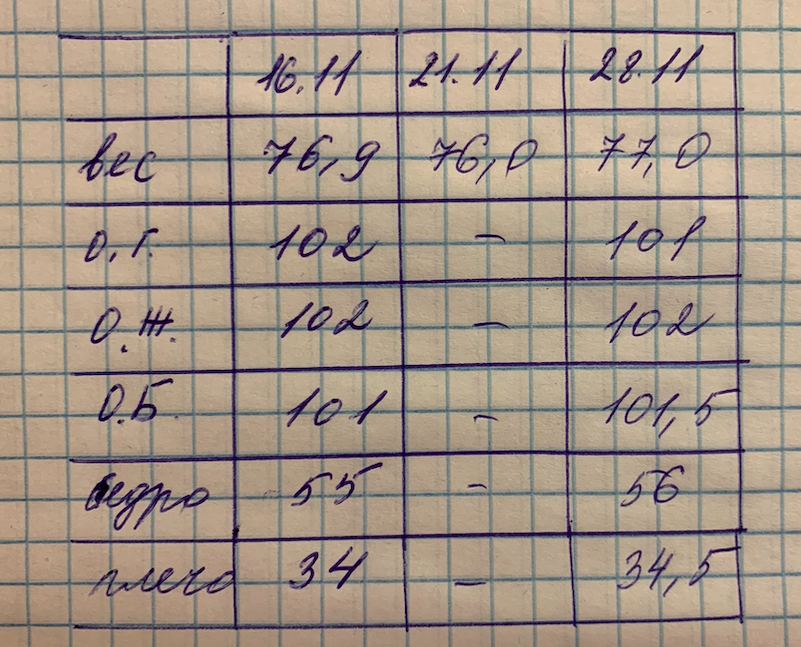 16.11 21.11 28.11
вес 76,9 76,0 77,0
О.Г. 102 – 101
О.Ж. 102 – 102
О.Б. 101 – 101,5
бедро 55 – 56
плечо 34 – 34,5